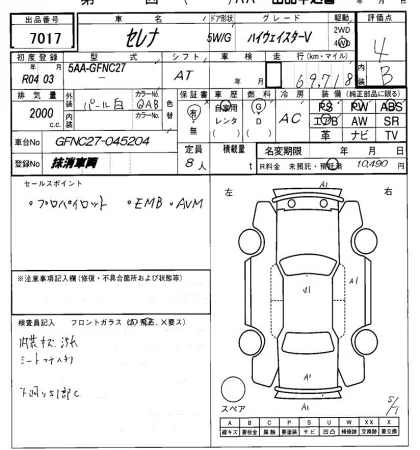 出品番号 車名 ドア形状 グレード 駆動 評価点
7017 セレナ 5W/G ハイウェイスターV 2WD 4WD 4
初度登録 型式 シフト 車検 走行(km・マイル) 内装
年 月 5AA-GFNC27 AT 年 月 69,718 B
R04 03
排気量 外装 カラーNo. 色替 保証書 車歴 燃料 冷房 装備(純正部品に限る)
2000 c.c. パール白 QAB 有 無 自家用 レンタ ( ) G D ( ) AC PS PW ABS
内装 カラーNo. エアB AW SR
革 ナビ TV
車台No GFNC27-045204 定員 積載量 名変期限 年 月 日
登録No 抹消車両 8人 t R料金 未預託・預託済 10,490円
セールスポイント
・プロパイロット ・EMB ・AVM
左 右
A1
U1 A1
A1
A1
スペア
※注意事項記入欄(修復・不具合箇所および状態等)
検査員記入 フロントガラス(A 飛石、X要ス)
内装キズ、汚れ
S/T
A B C P S U W X XX X
線キズ 要板金 腐蝕 要塗装 サビ 凹凸 補修跡 交換跡 要交換